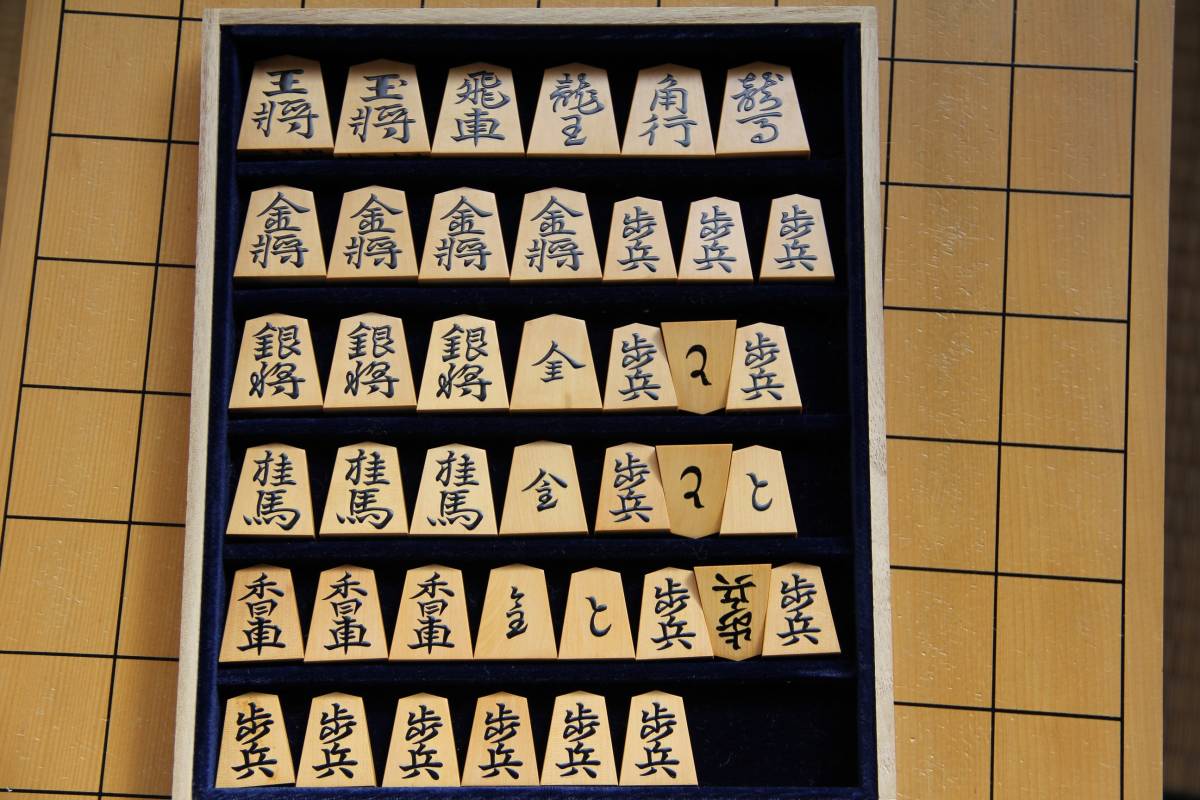 王将 玉将 飛車 龍王 角行 龍馬
金将 金将 金将 金将 歩兵 歩兵 歩兵
銀将 銀将 銀将 全 歩兵 と 歩兵
桂馬 桂馬 桂馬 金 歩兵 と と
香車 香車 香車 と 歩兵 歩兵 歩兵
歩兵 歩兵 歩兵 歩兵 歩兵 歩兵